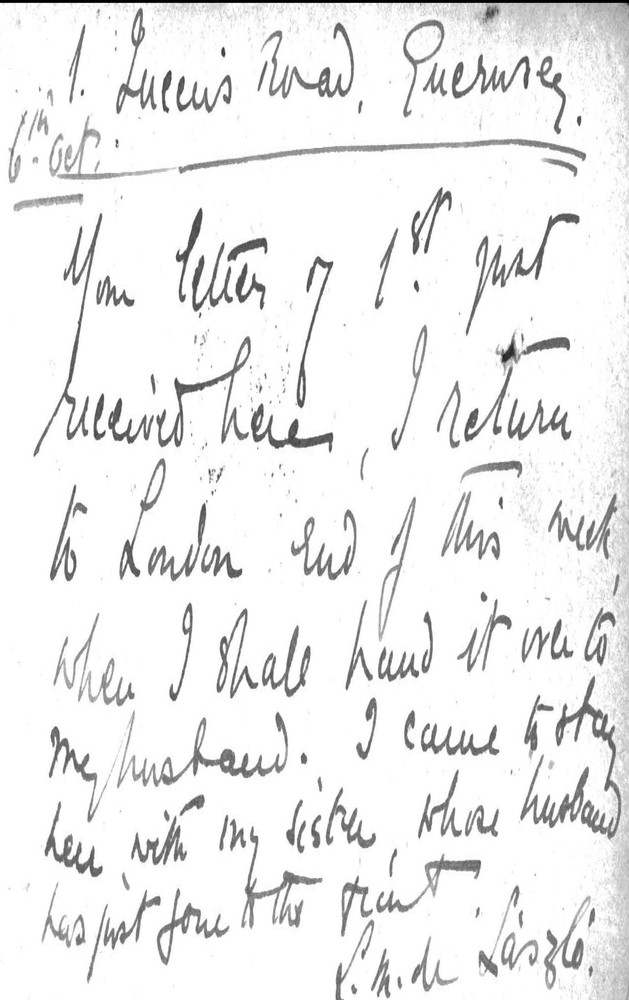 1. Queen's Road, Guernsey.
6th Oct.
Your letter of 1st just
received here, I return
to London end of this week,
when I shall hand it over to
my husband. I came to stay
here with my sister, whose husband
has just gone to the Front
L. M. de László.